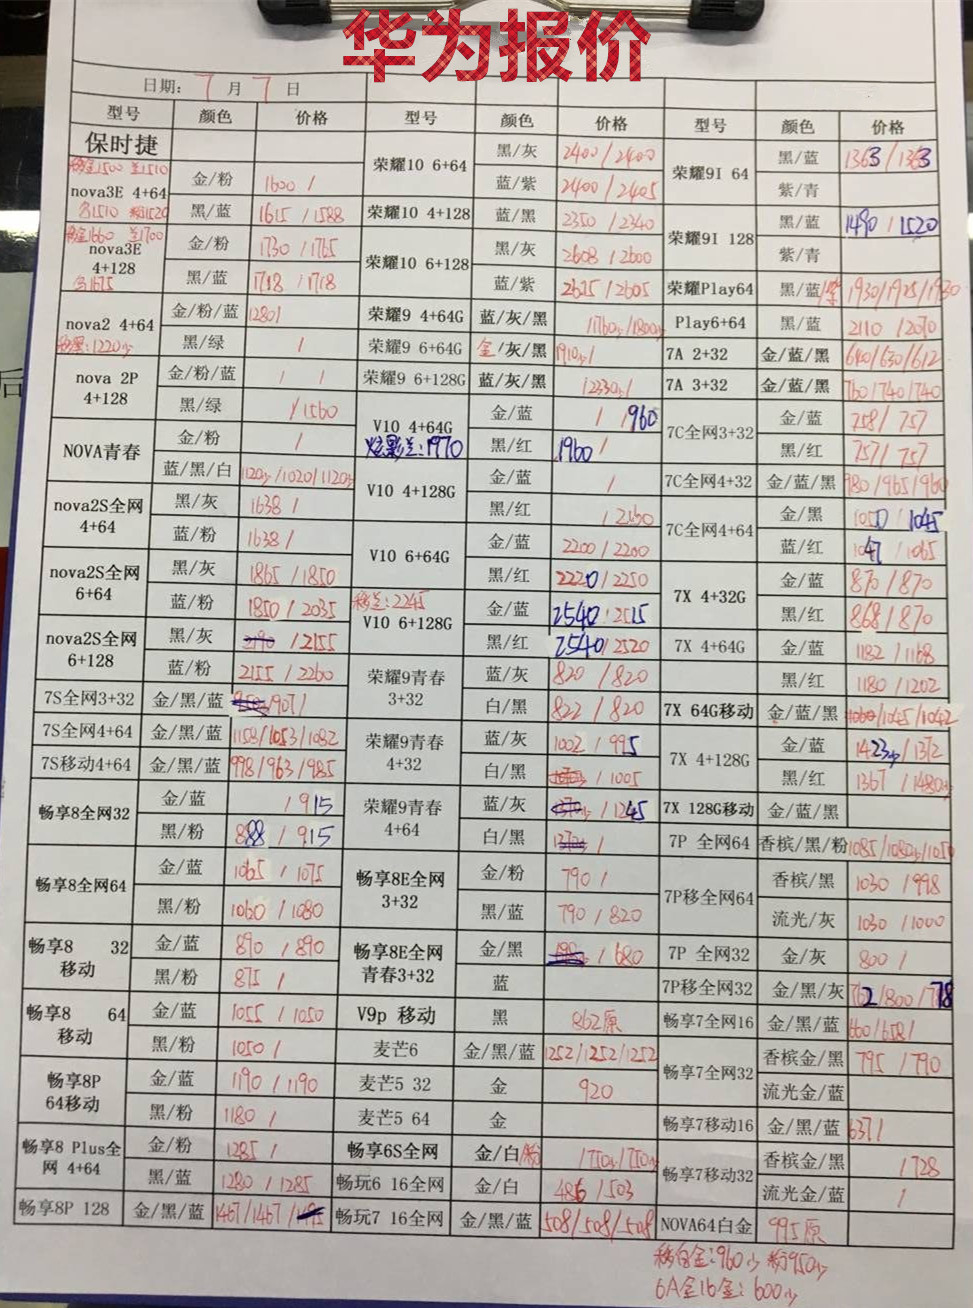 华为报价
日期: 7 月 7 日
型号 颜色 价格 型号 颜色 价格 型号 颜色 价格
保时捷 荣耀10 6+64 黑/灰 2400/2400 荣耀9I 64 黑/蓝 1363/1363
nova3E 4+64 金/粉 1600/ 蓝/紫 2400/2405 紫/青
黑/蓝 1615/1588 荣耀10 4+128 蓝/黑 2350/2340 荣耀9I 128 黑/蓝 1490/1520
nova3E 4+128 金/粉 1730/1765 荣耀10 6+128 黑/灰 2608/2600 紫/青
黑/蓝 1718/1718 蓝/紫 2625/2605 荣耀Play64 黑/蓝
nova2 4+64 金/粉/蓝 1280/ 荣耀9 4+64G 蓝/灰/黑 Play6+64 黑/蓝 2110/2070
黑/绿 / 荣耀9 6+64G 金/灰/黑 7A 2+32 金/蓝/黑 640/630/612
nova 2P 4+128 金/粉/蓝 / / 荣耀9 6+128G 蓝/灰/黑 7A 3+32 金/蓝/黑 760/740/740
黑/绿 /1560 V10 4+64G 金/蓝 /1960 7C全网3+32 金/蓝 758/757
NOVA青春 金/粉 / 炫影兰:1970 黑/红 1960/ 黑/红 757/757
蓝/黑/白 V10 4+128G 金/蓝 / 7C全网4+32 金/蓝/黑 980/965/960
nova2S全网 4+64 黑/灰 1638/ 黑/红 7C全网4+64 金/黑 1050/1045
蓝/粉 1638/ V10 6+64G 金/蓝 2200/2200 蓝/红 1047/1065
nova2S全网 6+64 黑/灰 1865/1850 黑/红 2220/2250 7X 4+32G 金/蓝 870/870
蓝/粉 1850/2035 V10 6+128G 金/蓝 2540/2515 黑/红 868/870
nova2S全网 6+128 黑/灰 /2155 黑/红 2540/2520 7X 4+64G 金/蓝 1182/1168
蓝/粉 2155/2260 荣耀9青春 3+32 蓝/灰 820/820 黑/红 1180/1202
7S全网3+32 金/黑/蓝 白/黑 822/820 7X 64G移动 金/蓝/黑 /1045/1042
7S全网4+64 金/黑/蓝 1158/1053/1082 荣耀9青春 4+32 蓝/灰 1002/995 7X 4+128G 金/蓝
7S移动4+64 金/黑/蓝 998/963/985 白/黑 /1005 黑/红
畅享8全网32 金/蓝 /915 荣耀9青春 4+64 蓝/灰 /1245 7X 128G移动 金/蓝/黑
黑/粉 888/915 白/黑 7P 全网64 香槟/黑/粉
畅享8全网64 金/蓝 1065/1075 畅享8E全网 3+32 金/粉 790/ 7P移全网64 香槟/黑 1030/998
黑/粉 1060/1080 黑/蓝 790/820 流光/灰 1030/1000
畅享8 32 移动 金/蓝 890/890 畅享8E全网 青春3+32 金/黑 /680 7P 全网32 金/灰 800/
黑/粉 875/ 蓝 7P移全网32 金/黑/灰
畅享8 64 移动 金/蓝 1055/1050 V9p 移动 黑 862原 畅享7全网16 金/黑/蓝 660/658/
黑/粉 1050/ 麦芒6 金/黑/蓝 1252/1252/1252 畅享7全网32 香槟金/黑 795/790
畅享8P 64移动 金/蓝 1190/1190 麦芒5 32 金 920 流光金/蓝
黑/粉 1180/ 麦芒5 64 金 畅享7移动16 金/黑/蓝 637/
畅享8 Plus全网 4+64 金/粉 1285/ 畅享6S全网 金/白/粉 畅享7移动32 香槟金/黑 /728
黑/蓝 1280/1285 畅玩6 16全网 金/白 486/503 流光金/蓝 /
畅享8P 128 金/黑/蓝 1467/1467/ 畅玩7 16全网 金/黑/蓝 508/508/508 NOVA64白金 995原